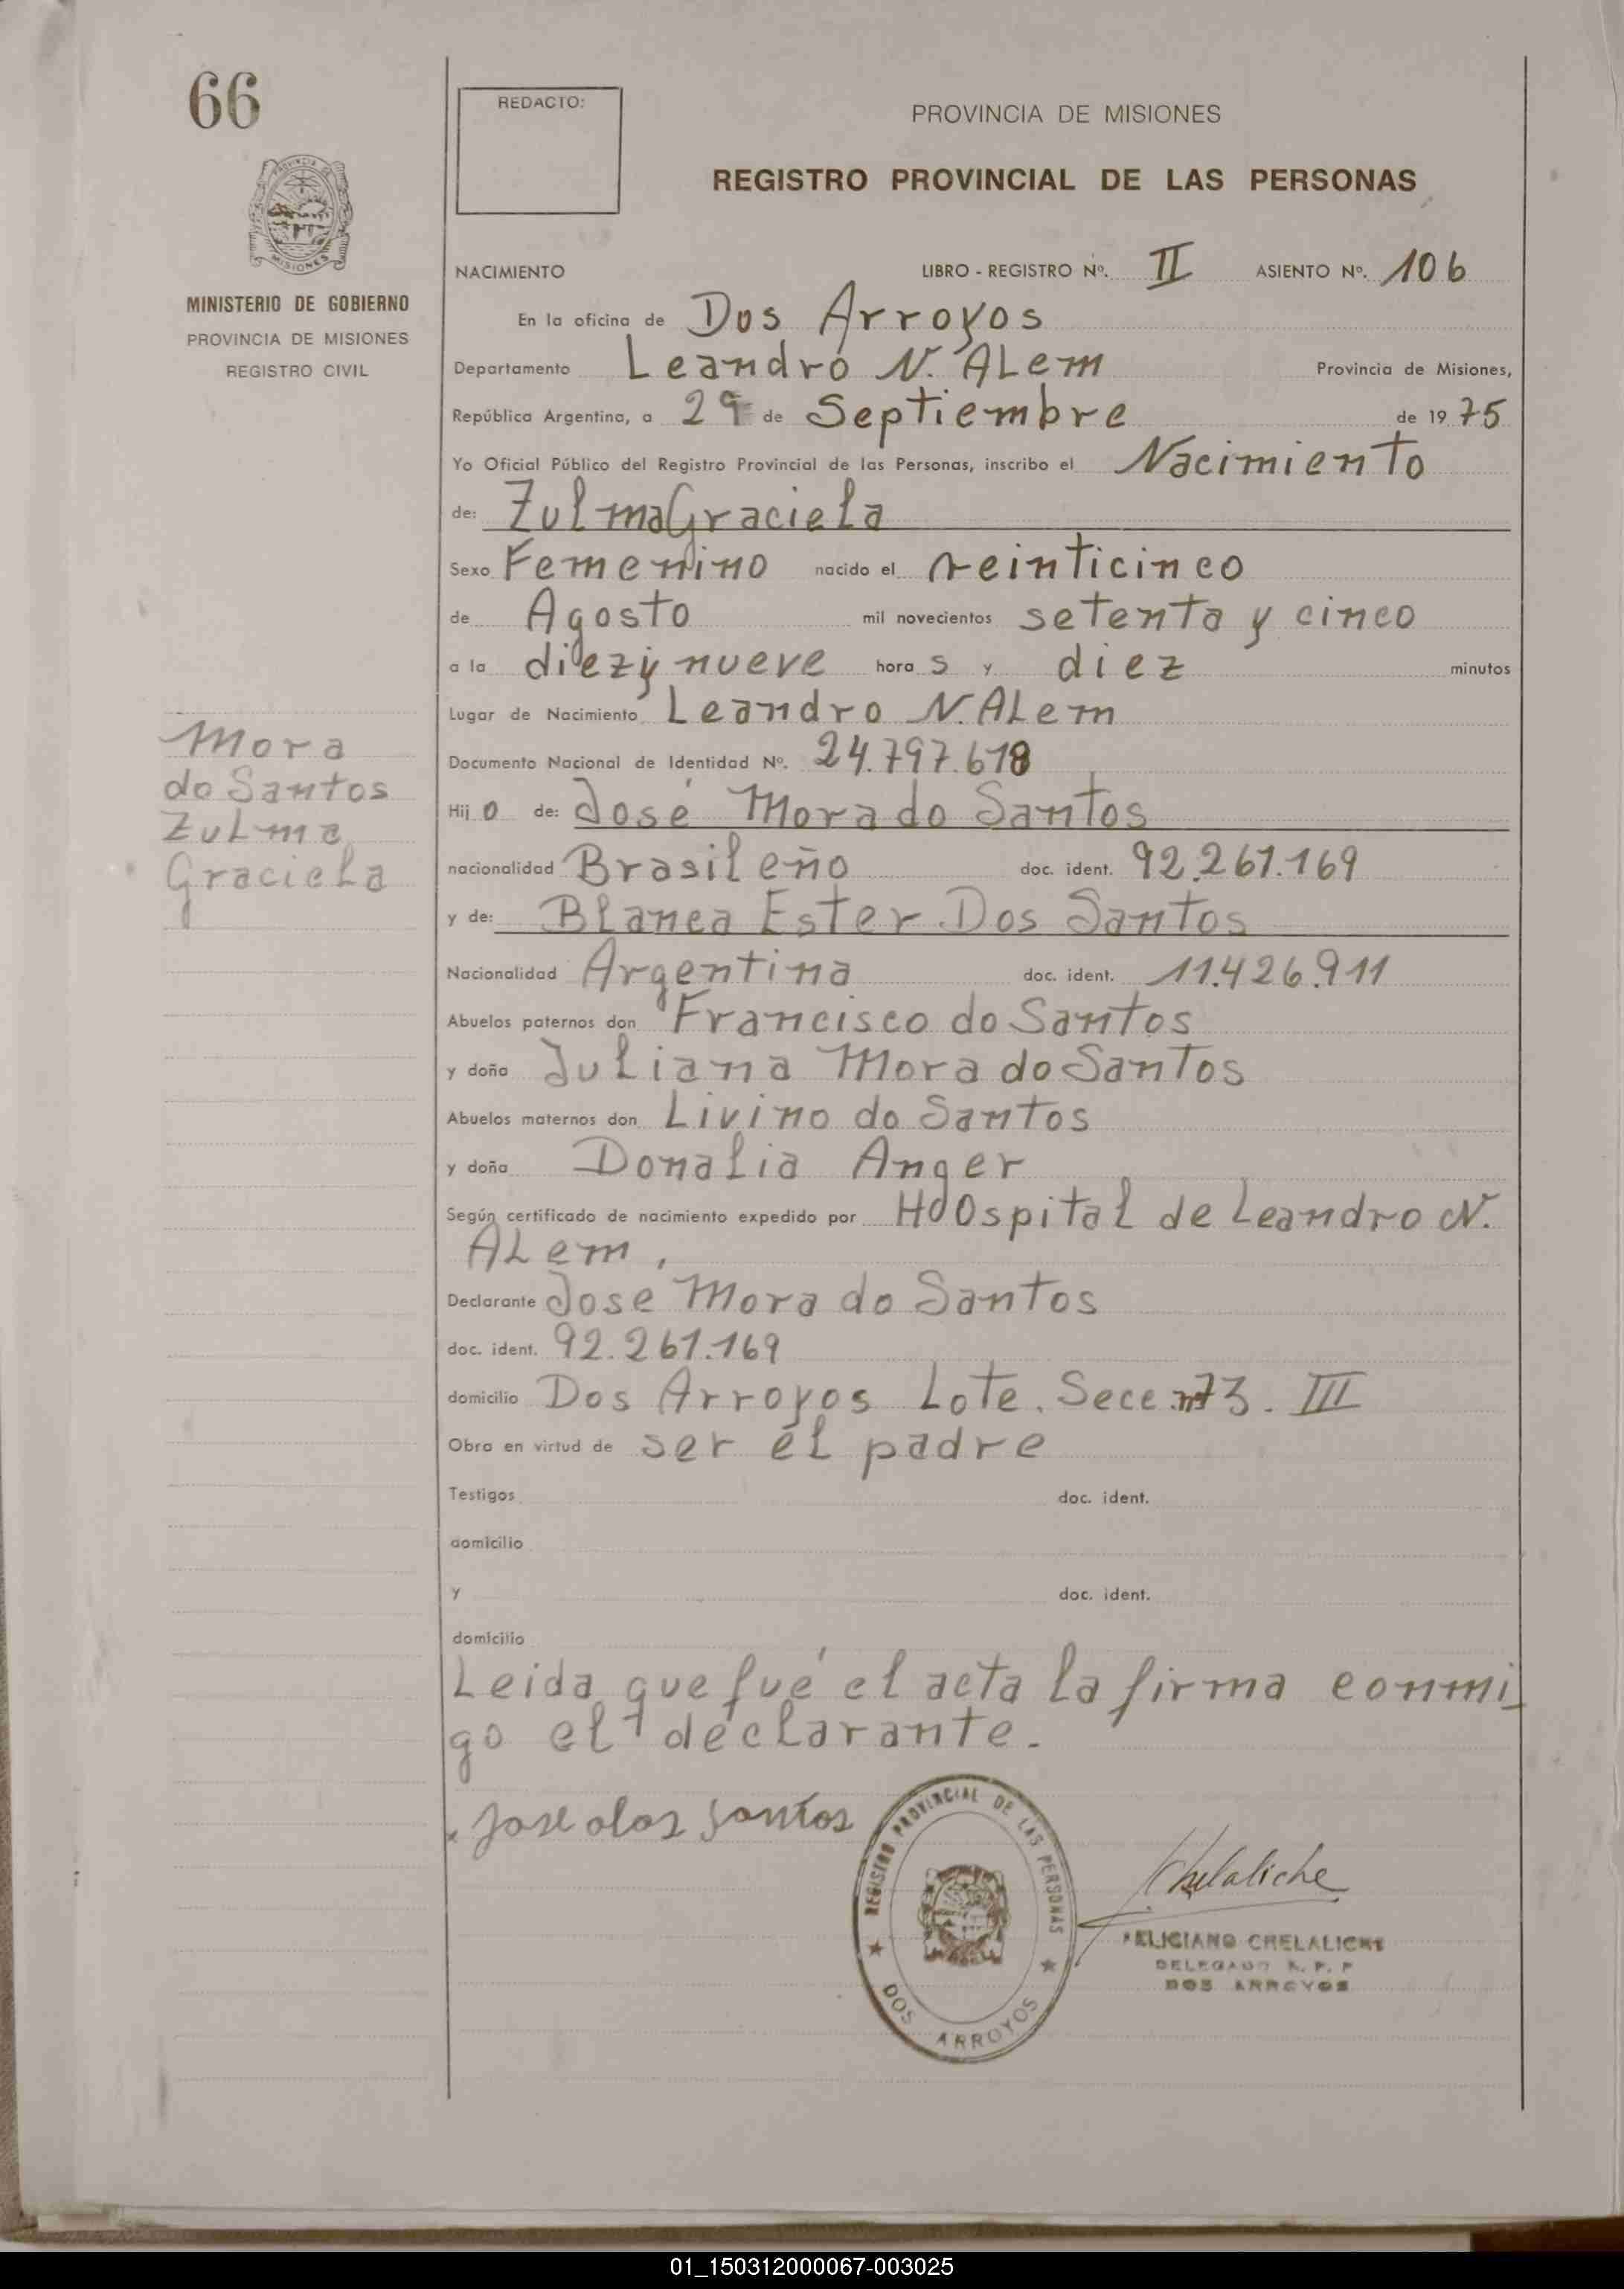 66
REDACTO:
PROVINCIA DE MISIONES
REGISTRO PROVINCIAL DE LAS PERSONAS
PROVINCIA DE
MISIONES
MINISTERIO DE GOBIERNO
PROVINCIA DE MISIONES
REGISTRO CIVIL
NACIMIENTO LIBRO - REGISTRO Nº. II ASIENTO Nº. 106
En la oficina de Dos Arroyos
Departamento Leandro N. ALem Provincia de Misiones,
República Argentina, a 29 de Septiembre de 19 75
Yo Oficial Público del Registro Provincial de las Personas, inscribo el Nacimiento
de: Zulma Graciela
Sexo Femenino nacido el veinticinco
de Agosto mil novecientos setenta y cinco
a la diez y nueve hora s y diez minutos
Lugar de Nacimiento Leandro N. ALem
Documento Nacional de Identidad Nº. 24.797.618
Hij o de: José Mora do Santos
nacionalidad Brasileño doc. ident. 92.261.169
y de: Blanca Ester Dos Santos
Nacionalidad Argentina doc. ident. 11.426.911
Abuelos paternos don Francisco do Santos
y doña Juliana Mora do Santos
Abuelos maternos don Livino do Santos
y doña Donalia Anger
Según certificado de nacimiento expedido por HoOspital de Leandro N.
ALem,
Declarante José Mora do Santos
doc. ident. 92.261.169
domicilio Dos Arroyos Lote. Secc. 73. III
Obra en virtud de ser él padre
Testigos doc. ident.
domicilio
y doc. ident.
domicilio
Leida que fué el acta la firma conmi_
go el declarante.
Mora
do Santos
Zulma
Graciela
Jose dos santos
REGISTRO PROVINCIAL DE LAS PERSONAS
DOS ARROYOS
Chelaliche
FELICIANO CHELALICHE
DELEGADO R. P. P
DOS ARROYOS
01_150312000067-003025